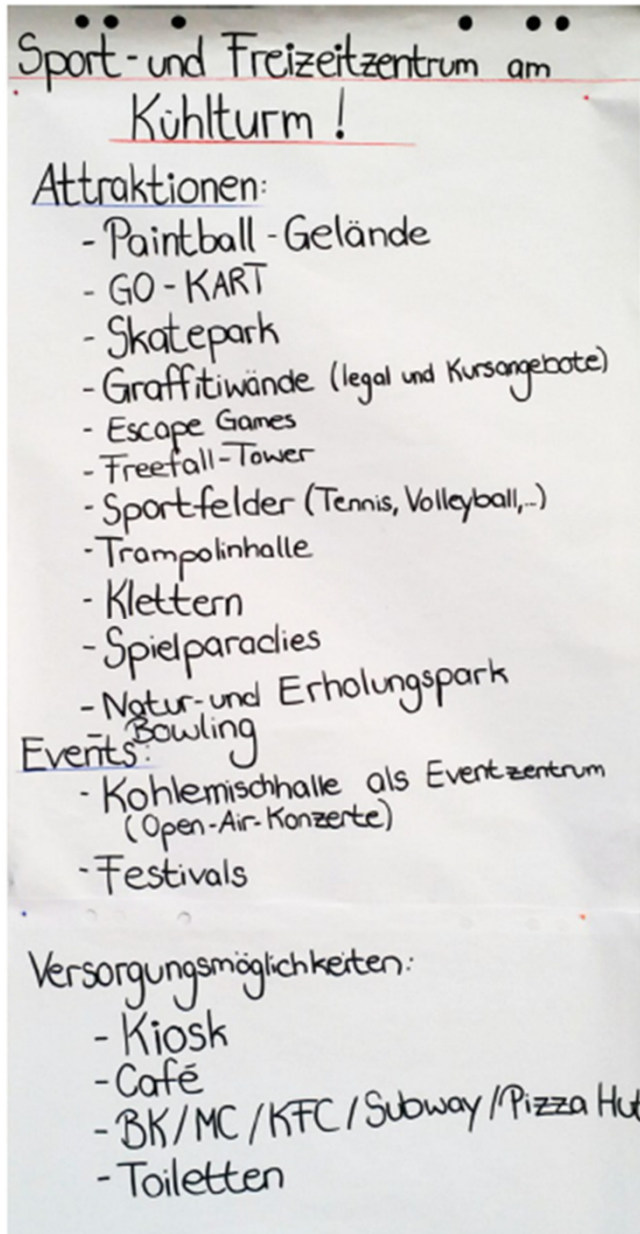 Sport- und Freizeitzentrum am
Kühlturm !
Attraktionen:
- Paintball - Gelände
- GO - KART
- Skatepark
- Graffitiwände (legal und Kursangebote)
- Escape Games
- Freefall-Tower
- Sportfelder (Tennis, Volleyball,...)
- Trampolinhalle
- Klettern
- Spielparadies
- Natur- und Erholungspark
- Bowling
Events:
- Kohlemischhalle als Eventzentrum
(Open-Air-Konzerte)
- Festivals
Versorgungsmöglichkeiten:
- Kiosk
- Café
- BK/MC/KFC/Subway/Pizza Hut
- Toiletten